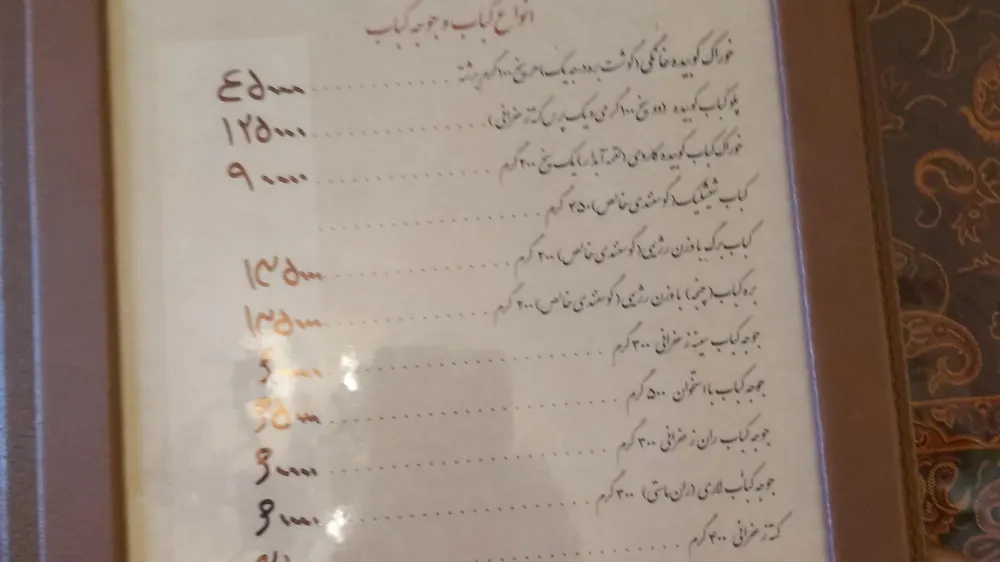 انواع کباب و جوجه کباب
خوراک کوبیده خانگی (گوشت بره درجه یک) هر سیخ ۱۰۰ گرم برشته ........ ۴۵۰۰۰۰
پلو کباب کوبیده (دو سیخ ۱۰۰ گرمی و یک پرس کته زعفرانی) ........ ۱۲۵۰۰۰۰
خوراک کباب کوبیده کاردی (لقمه آبدار) یک سیخ ۲۰۰ گرم ........ ۹۰۰۰۰۰
کباب شیشلیک (گوسفندی خالص) ۴۵۰ گرم ........
کباب برگ با وزن رژیمی (گوسفندی خالص) ۲۰۰ گرم ........ ۱۳۵۰۰۰۰
بره کباب (چنجه) با وزن رژیمی (گوسفندی خالص) ۲۰۰ گرم ........ ۱۳۵۰۰۰۰
جوجه کباب سینه زعفرانی ۳۰۰ گرم ........
جوجه کباب با استخوان ۵۰۰ گرم ........
جوجه کباب ران زعفرانی ۳۰۰ گرم ........
جوجه کباب لاری (ران ماستی) ۳۰۰ گرم ........
کته زعفرانی ۴۰۰ گرم ........